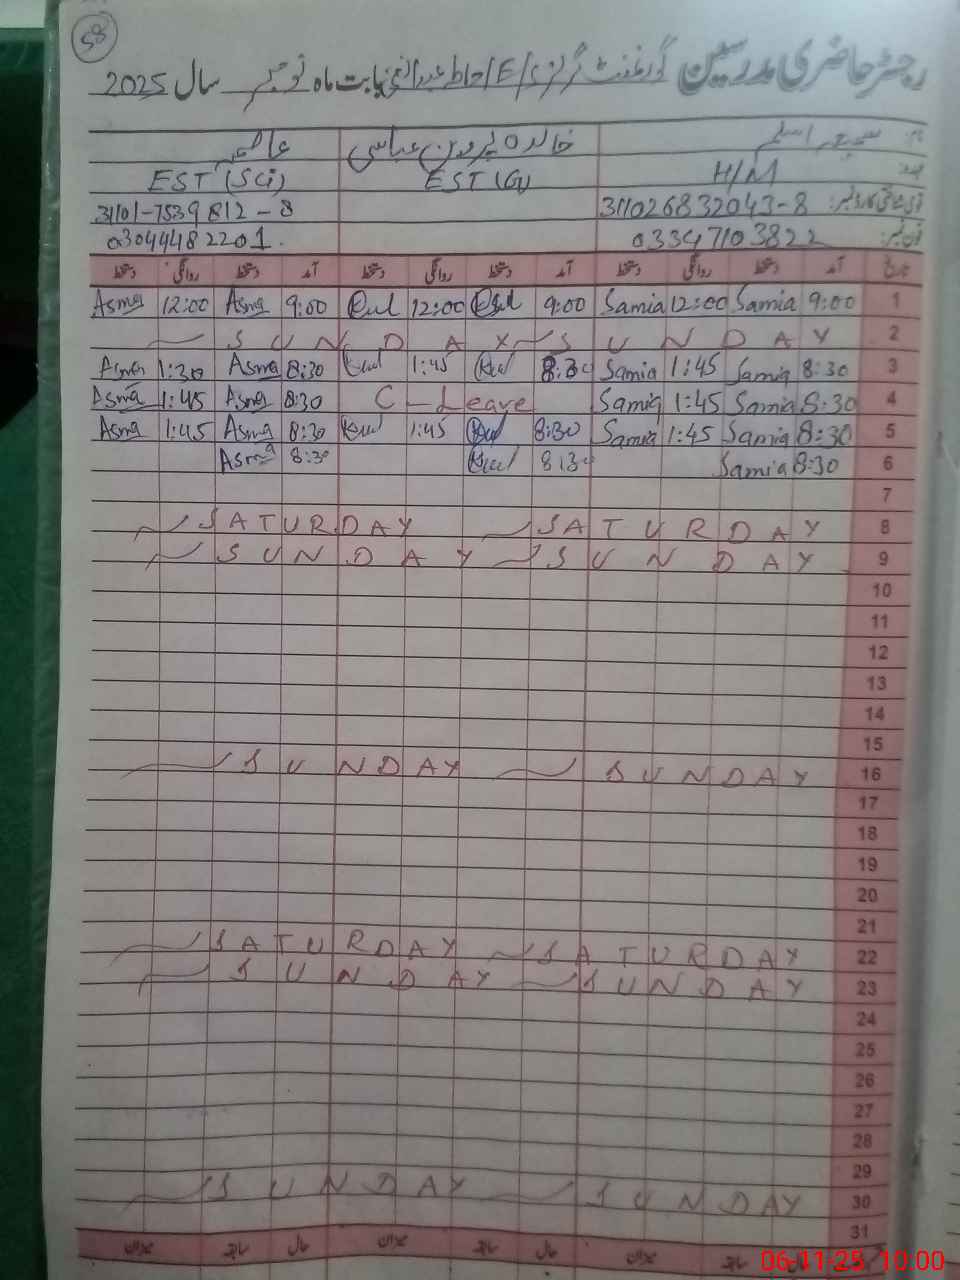 58
رجسٹر حاضری مدرسین گورنمنٹ گرلز E/ بابت ماہ نومبر سال 2025
نام: سمیعہ اسلم خالدہ پروین عباسی عاصمہ
عہدہ H/M EST (G) EST (Sci)
قومی شناختی کارڈ نمبر: 311026832043-8 31101-7539812-8
فون نمبر: 03347103822 03044482201.
تاریخ آمد دستخط روانگی دستخط آمد دستخط روانگی دستخط آمد دستخط روانگی دستخط
Asma 12:00 Asma 9:00 12:00 9:00 Samia 12:00 Samia 9:00 1
SUNDAY SUNDAY 2
Asma 1:30 Asma 8:30 1:45 8:30 Samia 1:45 Samia 8:30 3
Asma 1:45 Asma 8:30 C-Leave Samia 1:45 Samia 8:30 4
Asma 1:45 Asma 8:30 1:45 8:30 Samia 1:45 Samia 8:30 5
Asma 8:30 8:30 Samia 8:30 6
7
SATURDAY SATURDAY 8
SUNDAY SUNDAY 9
10
11
12
13
14
15
SUNDAY SUNDAY 16
17
18
19
20
21
SATURDAY SATURDAY 22
SUNDAY SUNDAY 23
24
25
26
27
28
29
SUNDAY SUNDAY 30
31
میزان سابقہ حال میزان سابقہ حال میزان سابقہ حال
06-11-25 10:00